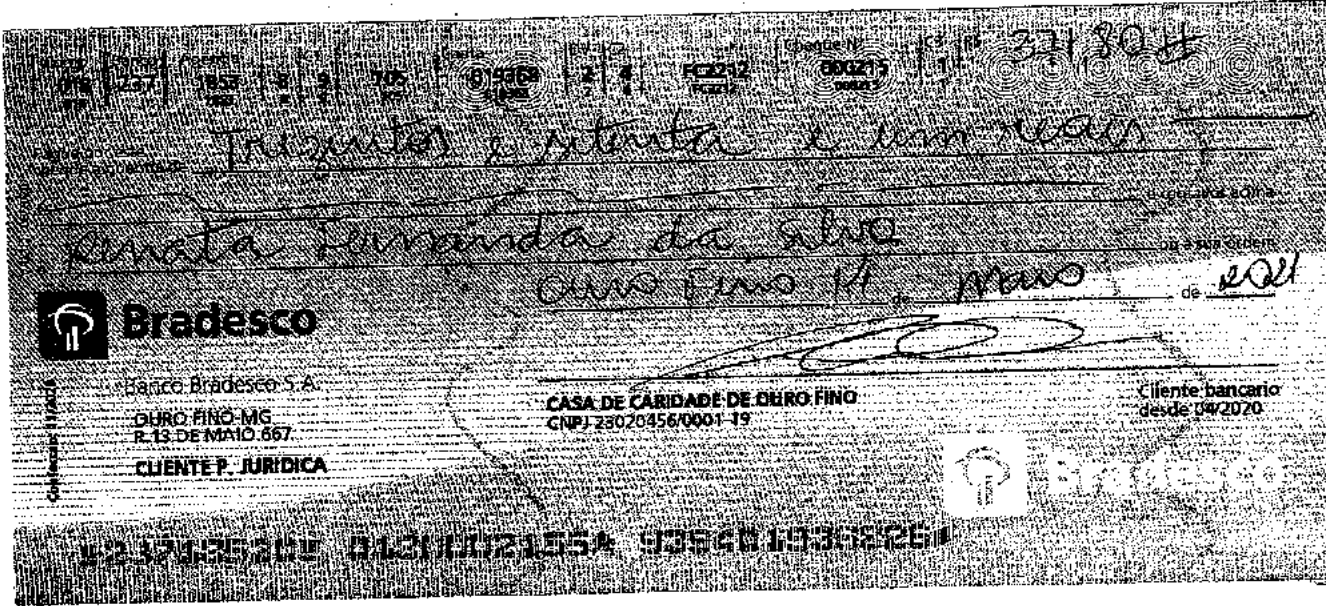 237 705 019368 2 4 FC2212 Cheque Nº 000215 1 R$ 371,80 #
Trezentos e setenta e um reais
e centavos acima
Renata Fernanda da Silva ou à sua ordem
Ouro Fino 14 de Maio de 2021
Bradesco
Banco Bradesco S.A.
OURO FINO-MG
R.13 DE MAIO 667
CLIENTE P. JURIDICA
CASA DE CARIDADE DE OURO FINO
CNPJ 23020456/0001-19
Cliente bancario
desde 04/2020
Bradesco